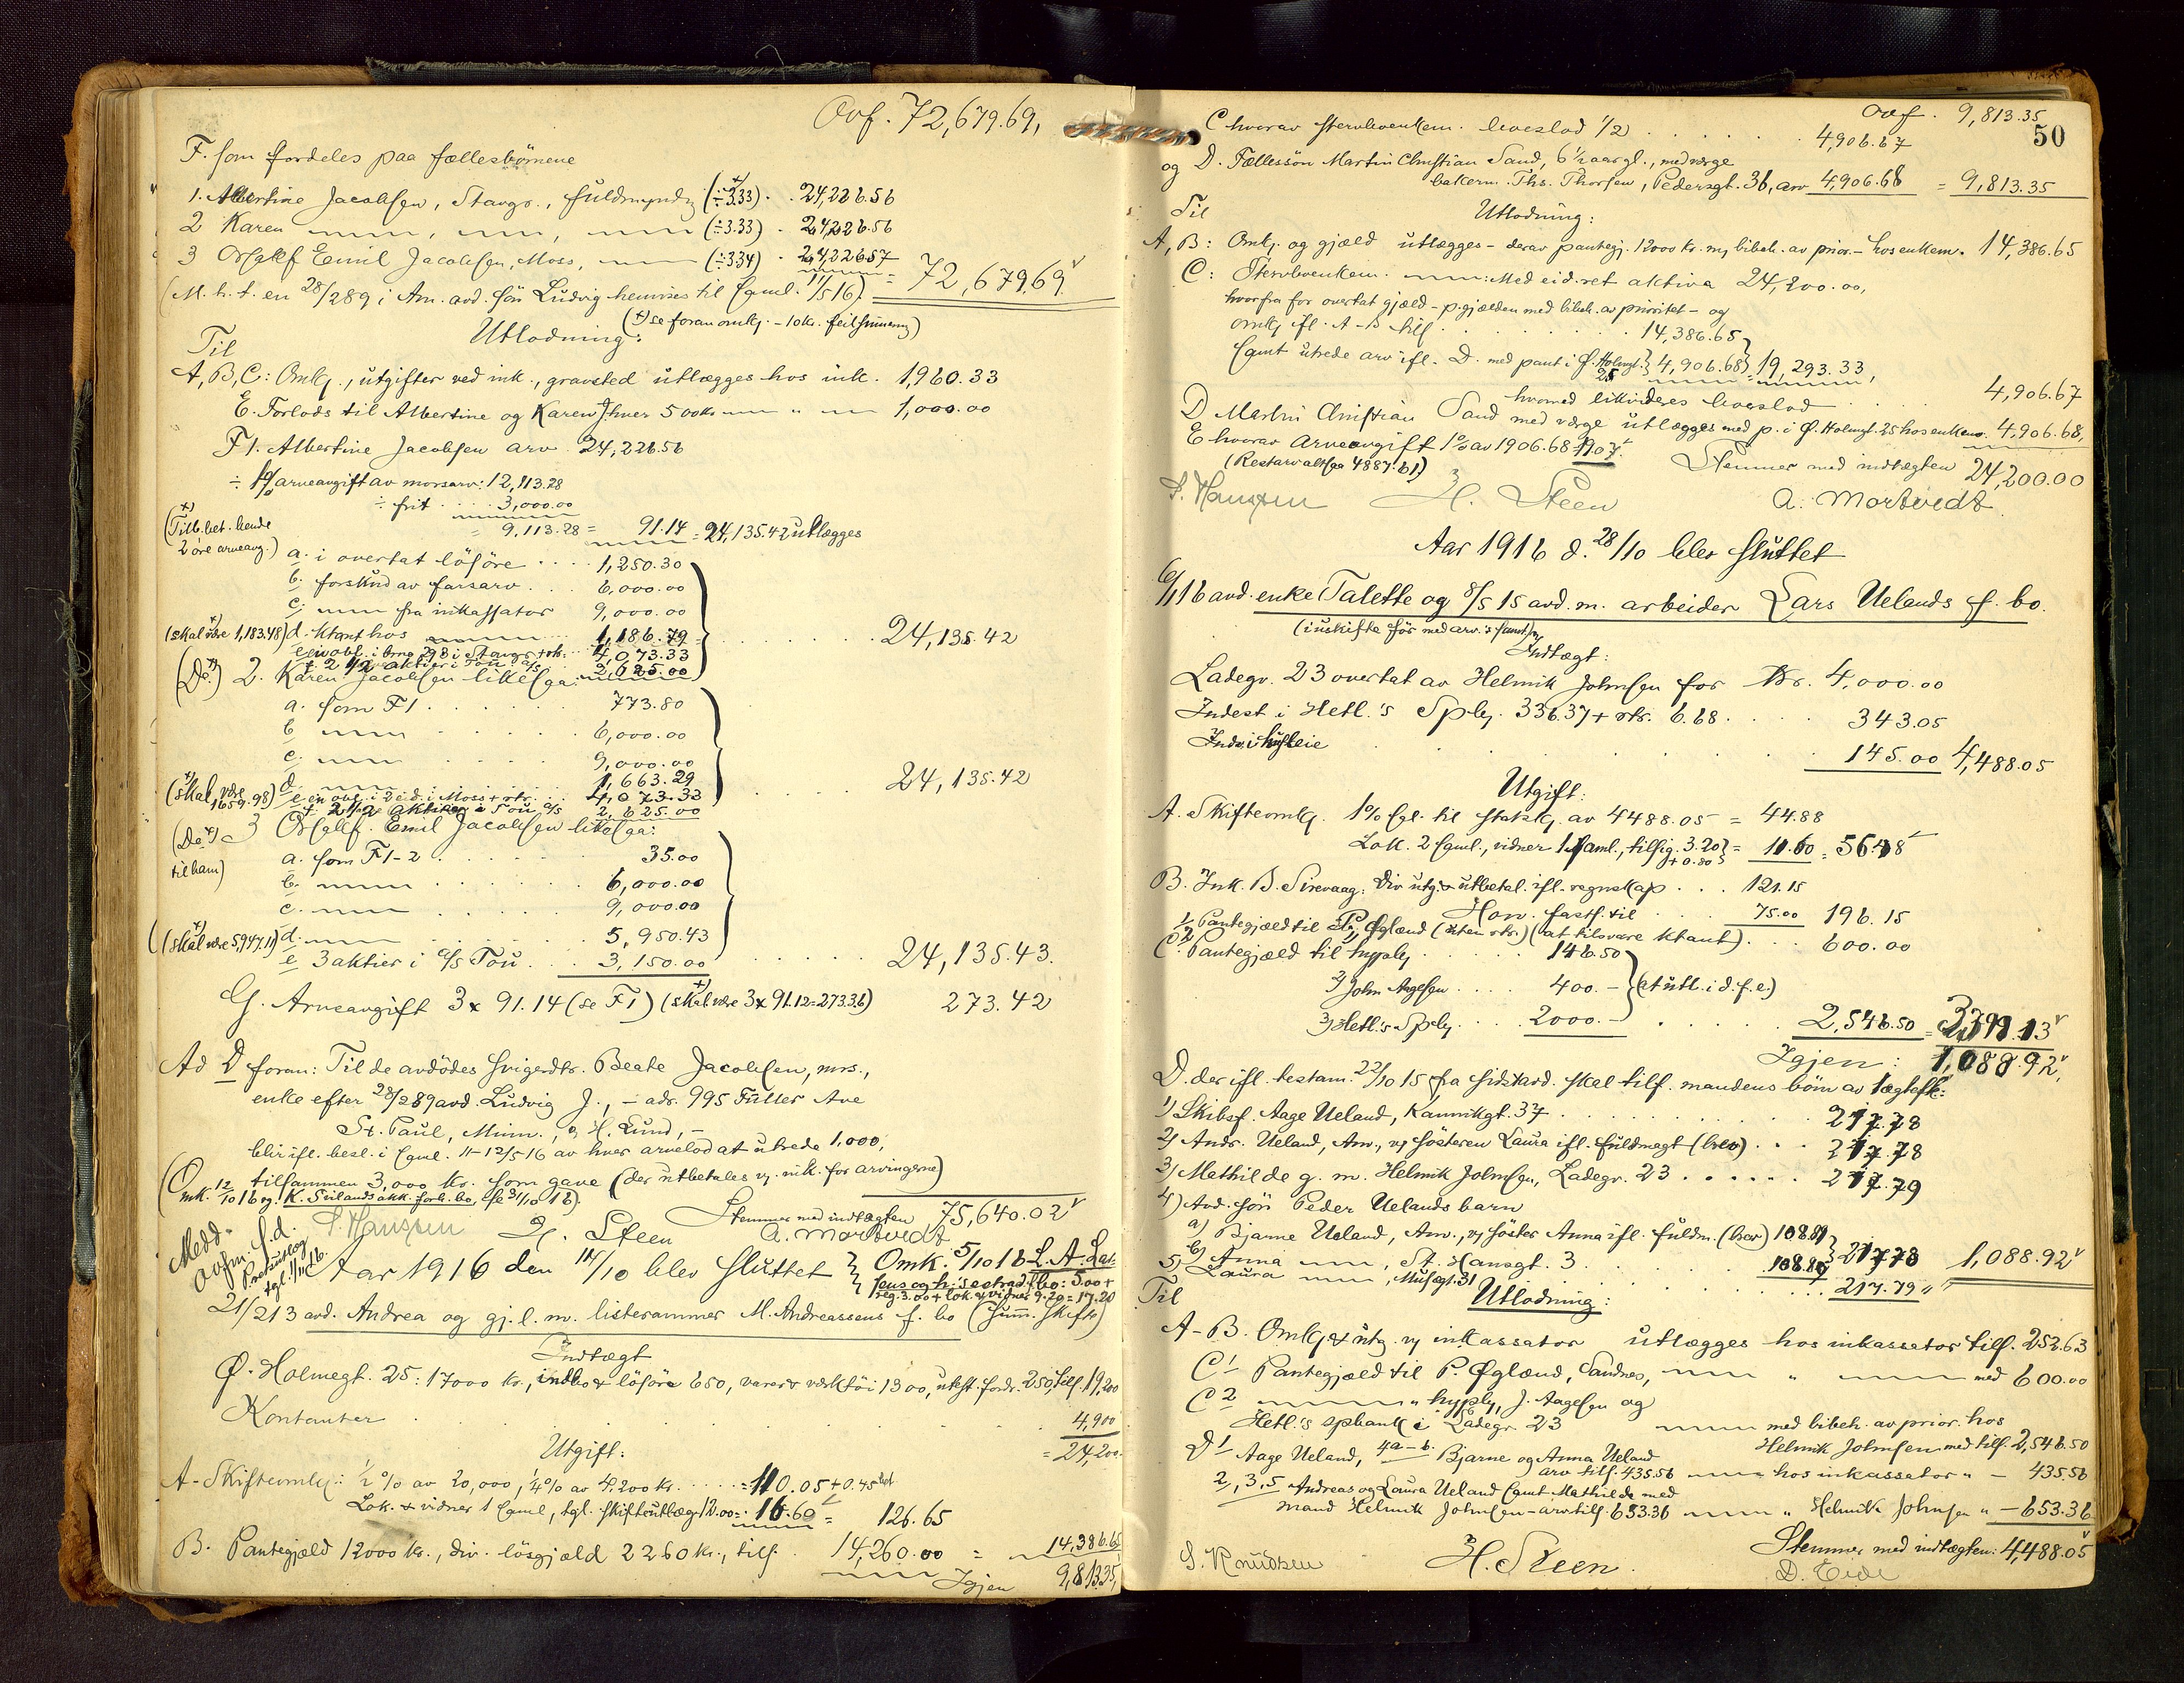 Ovf. 72,679.69,
F. som fordeles paa fællesbörnene
1. Albertine Jacobsen, Stavgr., fuldmyndig (÷3.33) . 24,226.56
2 Karen (÷3.33) . 24,226.56
3 Emil Jacobsen, Moss, (÷3.34) . 24,226.57 = 72,679.69
(M.h.t. en 28/2 89 i Am. avd. sön Ludvig henvises til saml. 11/5 16)
(+) se foran omkg. - 10 kr. feilsummering)
Utlodning:
Til
A, B, C: Omkg., utgifter ved ink., gravsted utlægges hos ink. 1,960.33
E. Forlods til Albertine og Karen J. hver 500 kr. 1,000.00
F1. Albertine Jacobsen arv 24,226.56
÷ 1% arveavgift av morsarv: 12,113.28
÷ frit . . 3,000.00
= 9,113.28 = 91.14 = 24,135.42 utlægges
(Tilb. bet. hende
2 öre arveavg.)
a. i overtat lösöre . . . . 1,250.30
b. forskud av farsarv . . . 6,000.00
c. fra inkassator 9,000.00
(skal være 1,183.48) d. ktant hos 1,186.79 . . . . . 24,135.42
4,073.33
f. 2 1/2 aktier i Tou a/s . . 2,625.00
(Do.) 2. Karen Jacobsen likesaa:
a. som F1 . . . . 773.80
b . . . . 6,000.00
c. . . . . 9,000.00
(skal være 1659.98) d. 1,663.29 . . . . 24,135.42
e en obl. i Moss + rtr. . . 4,073.33
f. 2 1/2 aktier i Tou a/s 2,625.00
(Do. til ham) 3 Emil Jacobsen likesaa:
a. som F1-2 . . . . 35.00
b. . . . . 6,000.00
c. . . . . 9,000.00
(skal være 5,947.11) d. . . . . 5,950.43
e 3 aktier i a/s Tou . . . 3,150.00 . . . . 24,135.43.
G. Arveavgift 3 x 91.14 (se F1) (skal være 3 x 91.12 = 273.36) 273.42
Ad D foran: Til de avdödes svigerdtr. Beate Jacobsen, mrs.,
enke efter 28/2 89 avd. Ludvig J., - adr. 995 Fuller Ave
St. Paul, Minn., v/ H. Lund, -
blir ifl. besl. i saml. 11-12/5 16 av hver arvelod at utrede 1,000,
tilsammen 3,000 kr. som gave (der utbetales v/ ink. for arvingerne)
Stemmer med indtægten 75,640.02
S. Hanssen H. Steen A. Mortvedt
Aar 1916 den 14/10 blev sluttet
Omk. 5/10 16 L. A. Lar-
21/2 13 avd. Andrea og gj.l.m. listerammer M. Andreassens f. bo (summ. skifte)
Indtægt
Ø. Holmegt. 25: 17000 kr., indbo & lösöre 650, varer & verktöi 1300, utest. fordr. 250, tils. 19,200
Kontanter . . . . 4,900
= 24,200.
Utgift:
A- Skifteomkg.: 1/2% av 20,000, 1/4% av 4,200 kr. . . . . = 110.05 + 0.45
Lok. & vidner 1 saml, tgl. skifteutlæg 12.00 = 16.60 = 126.65
B. Pantegjæld 12000 kr., div. lösgjæld 2260 kr., tils. 14,260.00 = 14,386.65
Igjen 9,813.35,
50
Ovf. 9,813.35
C hvorav stervboenkem. boeslod 1/2 . . . . . 4,906.67
og D. Fællessön Martin Christian Sand, 6 1/2 aar gl., med værge
bakerm. Ths. Thorsen, Pedersgt. 36, arv 4,906.68 = 9,813.35
Til Utlodning:
A, B: Omkg. og gjæld utlægges - derav pantegj. 12000 kr. m, bibeh. av prior. - hos enkem. 14,386.65
C: Stervboenkem. : Med eid. ret aktiva 24,200.00,
hvorfra for overtat gjæld - p.gjælden med bibeh. av prioritet - og
omkg ifl. A-B tils. . . . . . 14,386.65
samt utrede arv ifl. D. med pant i Ø. Holmegt. 25 4,906.68 = 19,293.33,
hvormed likvideres boeslod . . . 4,906.67
D Martin Christian Sand med værge utlægges med p. i Ø. Holmegt. 25 hos enkem. 4,906.68,
E hvorav arveavgift 1% av 1906.68 19.07.
(Restarv altsaa 4887.61) Stemmer med indtægten 24,200.00
S. Hanssen H. Steen A. Mortvedt
Aar 1916 d. 28/10 blev sluttet
6/1 16 avd. enke Talette og 8/5 15 avd. m. arbeider Lars Uelands f. bo.
Indtægt:
Ladegr. 23 overtat av Helmik Johnsen for Kr. 4,000.00
Indest. i Hetl.'s Spbg. 336.37 + rtr. 6.68 . . . . 343.05
Indv. i husleie . . . . 145.00 4,488.05
Utgift:
A. Skifteomkg. 1% sgl. til statskg. av 4488.05 = 44.88
Lok. 2 saml., vidner 1 saml., tilsig. 3.20 + 0.80 = 11.60 = 56.48
B. Ink. B. Sirevaag: Div utg. & utbetal. ifl. regnskap . . . 121.15
Hon. fasts. til . . . 75.00 196.15
1/ Pantegjæld til P. Øglænd (uten rtr.) (at tilsvare ktant) . . . 600.00
C.2 Pantegjæld til hyppbg . . . . 146.50
2) John Aagesen . . . . 400.- (at utl. i d.f.e.)
3) Hetl.'s Spbg. . . . 2000.- . . . . 2,546.50 = 3399.13
Igjen: 1,088.92
D. der ifl. testam. 22/10 15 fra sidstavd. skal tilf. mandens börn av 1 ægtesk.:
1) Skibsf. Aage Ueland, Kannikgt. 37 . . . . 217.78
2) Andr. Ueland, Am., v/ sösteren Laura ifl. fuldmagt (brev) . . . 217.78
3) Mathilde g. m. Helmik Johnsen, Ladegr. 23 . . . . . . 217.79
4) Avd. sön Peder Uelands barn
a) Bjarne Ueland, Am., v/ söster Anna ifl. fuldm. (brev) 108.89
b) Anna , St. Hansgt. 3 . . 108.89 217.78 1,088.92
5) Laura , Musegt. 31 . . . . 217.79
Til Utlodning:
A-B. Omkg & utg. v/ inkassator utlægges hos inkassator tils. 252.63
C1 Pantegjæld til P. Øglænd, Sandnes, " med 600.00
C2 " hyppbg, J. Aagesen og
Hetl.'s spbank i Ladegr. 23 med bibeh. av prior. hos
Helmik Johnsen med tils. 2,546.50
D1 Aage Ueland, 4a-b. Bjarne og Anna Ueland
arv tils. 435.56 hos inkassator " - 435.56
2, 3, 5 Andreas og Laura Ueland samt Mathilde med
mand Helmik Johnsen - arv tils. 653.36 " Helmik Johnsen " - 653.36
Stemmer med indtægten: 4,488.05
S. Knudsen H. Steen. D. Eide